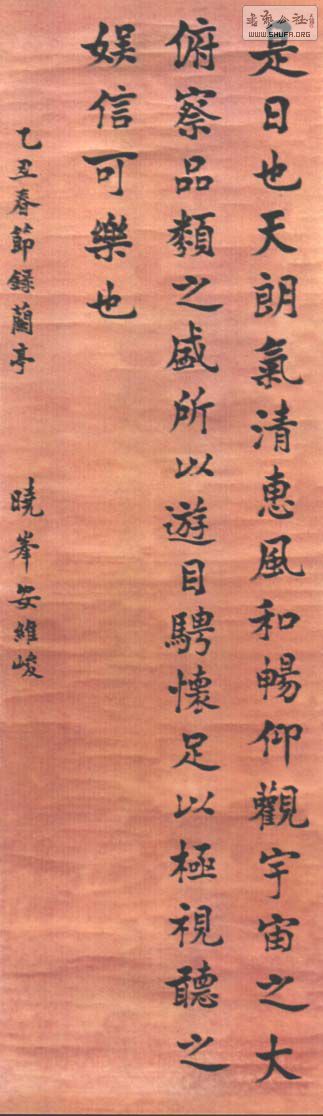 是日也天朗氣清惠風和暢仰觀宇宙之大
俯察品類之盛所以遊目騁懷足以極視聽之
娛信可樂也
乙丑春節錄蘭亭
曉峯安維峻
書藝公社
WWW.SHUFA.ORG